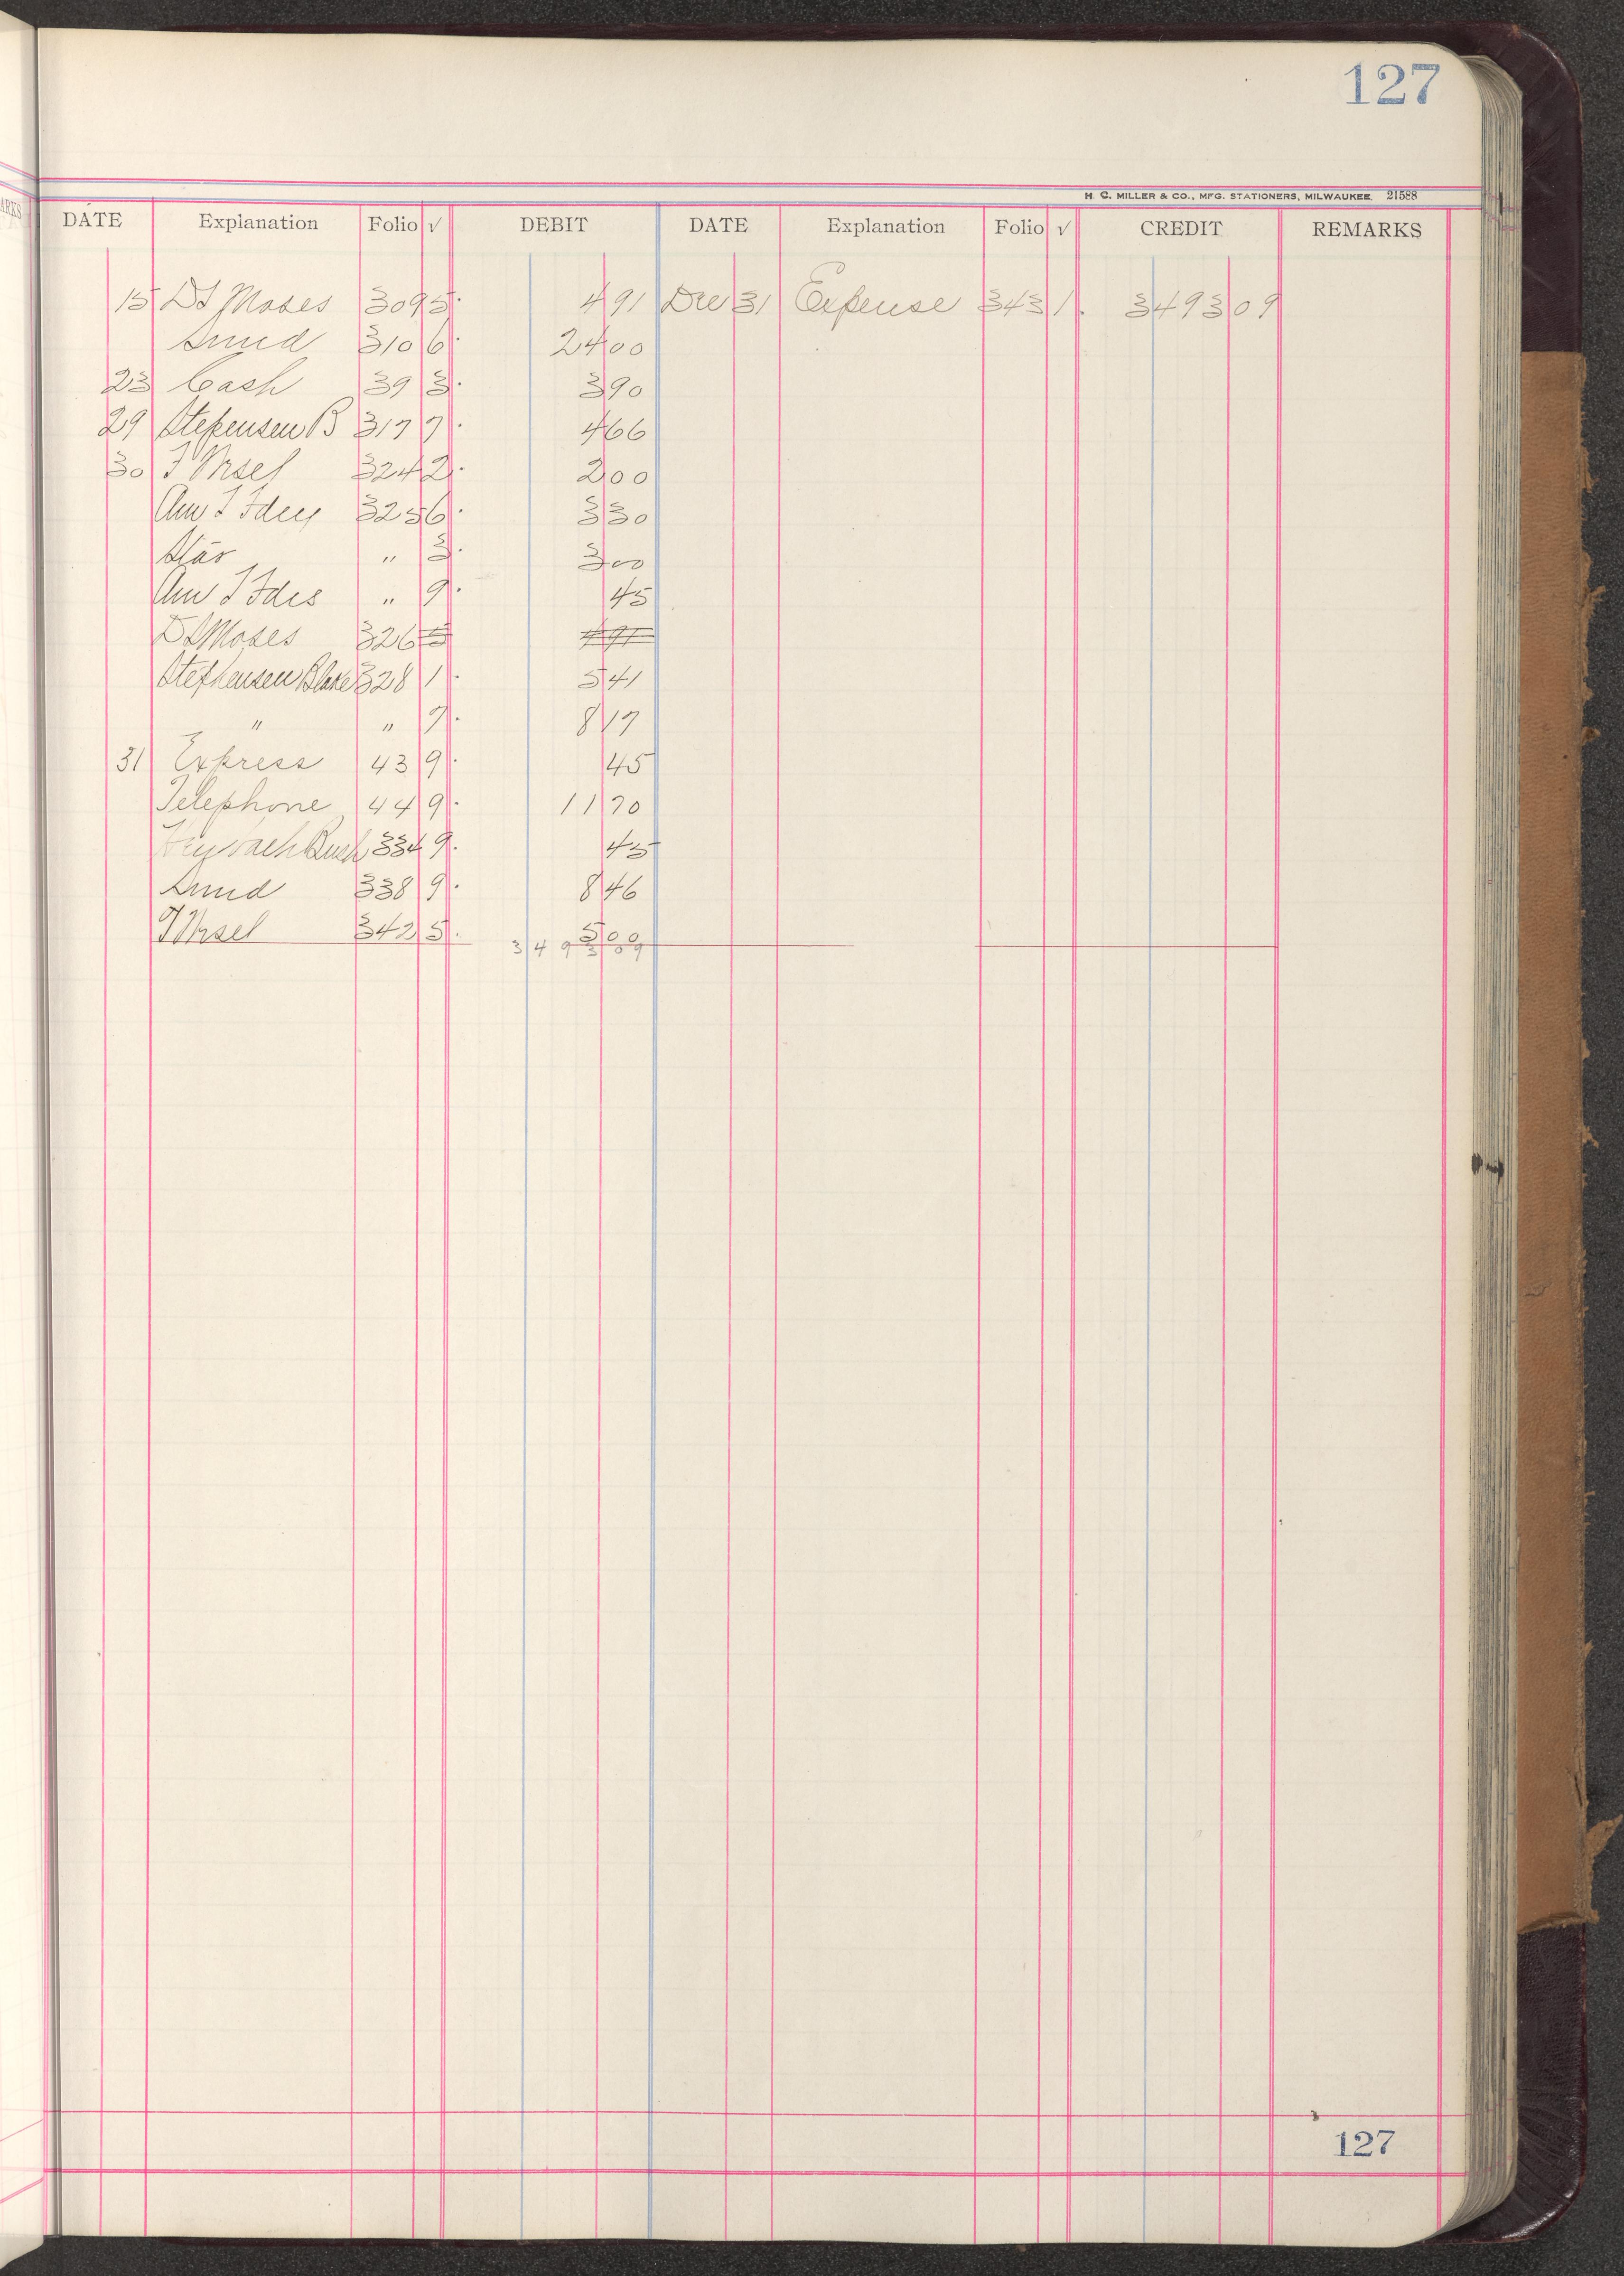 127
H. C. MILLER & CO., MFG. STATIONERS, MILWAUKEE. 21588
ARKS
DATE Explanation Folio √ DEBIT DATE Explanation Folio √ CREDIT REMARKS
15 D S Moses 309 5 4 91 Dec 31 Expense 343 1 3493 09
Sund 310 6 24 00
23 Cash 39 3 3 90
29 Stepensen B 317 7 4 66
30 324 2 2 00
Am T Fdry 325 6 3 30
Star " 3 3 00
Am T Fdrs " 9 45
D S Moses 326 5 4 91
Stephensen Blake 328 1 5 41
" " 7 8 17
31 Express 43 9 45
Telephone 44 9 11 70
Bush 334 9 45
Sund 338 9 8 46
342 5 5 00
3 4 9 3 0 9
127